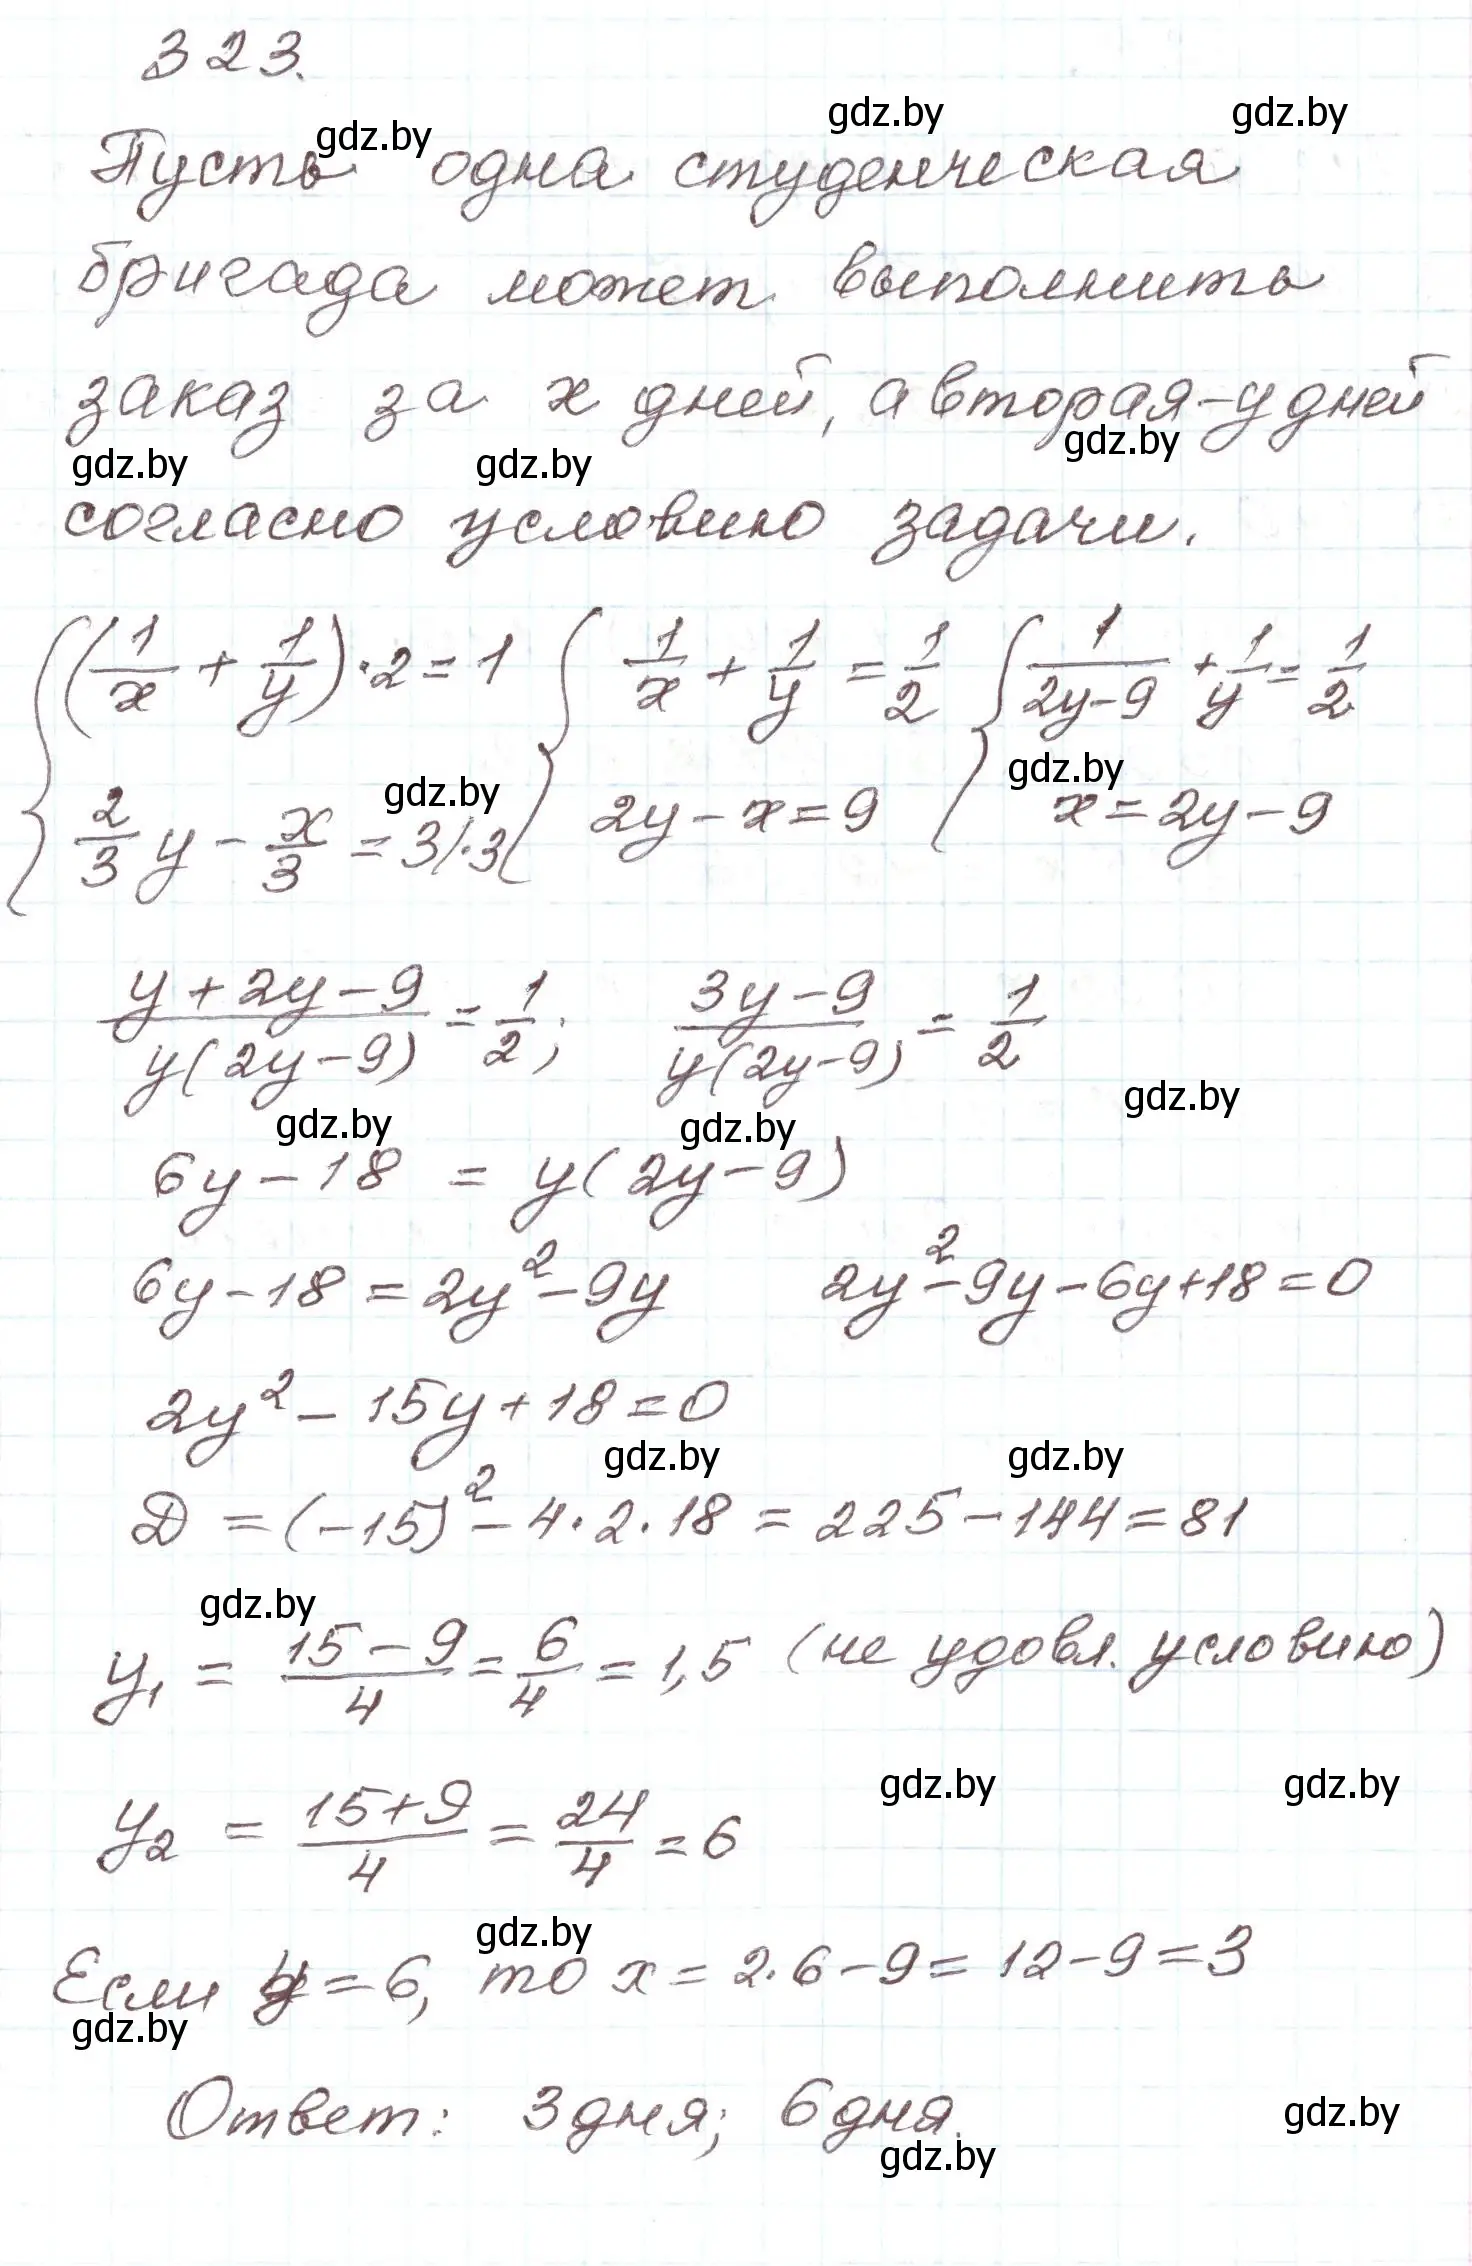 323.
gdz.by gdz.by gdz.by
Пусть одна студенческая
бригада может выполнить
заказ за x дней, а вторая - y дней
gdz.by gdz.by gdz.by
согласно условию задачи.
{ (1/x + 1/y) · 2 = 1 { 1/x + 1/y = 1/2 { 1/(2y-9) + 1/y = 1/2
gdz.by gdz.by
2/3 y - x/3 = 3 | · 3 2y - x = 9 x = 2y - 9
(y + 2y - 9)/(y(2y - 9)) = 1/2; (3y - 9)/(y(2y - 9)) = 1/2
gdz.by gdz.by gdz.by
6y - 18 = y(2y - 9)
6y - 18 = 2y² - 9y 2y² - 9y - 6y + 18 = 0
2y² - 15y + 18 = 0
gdz.by gdz.by
D = (-15)² - 4 · 2 · 18 = 225 - 144 = 81
gdz.by
y₁ = (15 - 9)/4 = 6/4 = 1,5 (не удовл. условию)
gdz.by gdz.by
y₂ = (15 + 9)/4 = 24/4 = 6
gdz.by
Если y = 6, то x = 2 · 6 - 9 = 12 - 9 = 3
gdz.by
Ответ: 3 дня; 6 дня.
gdz.by gdz.by